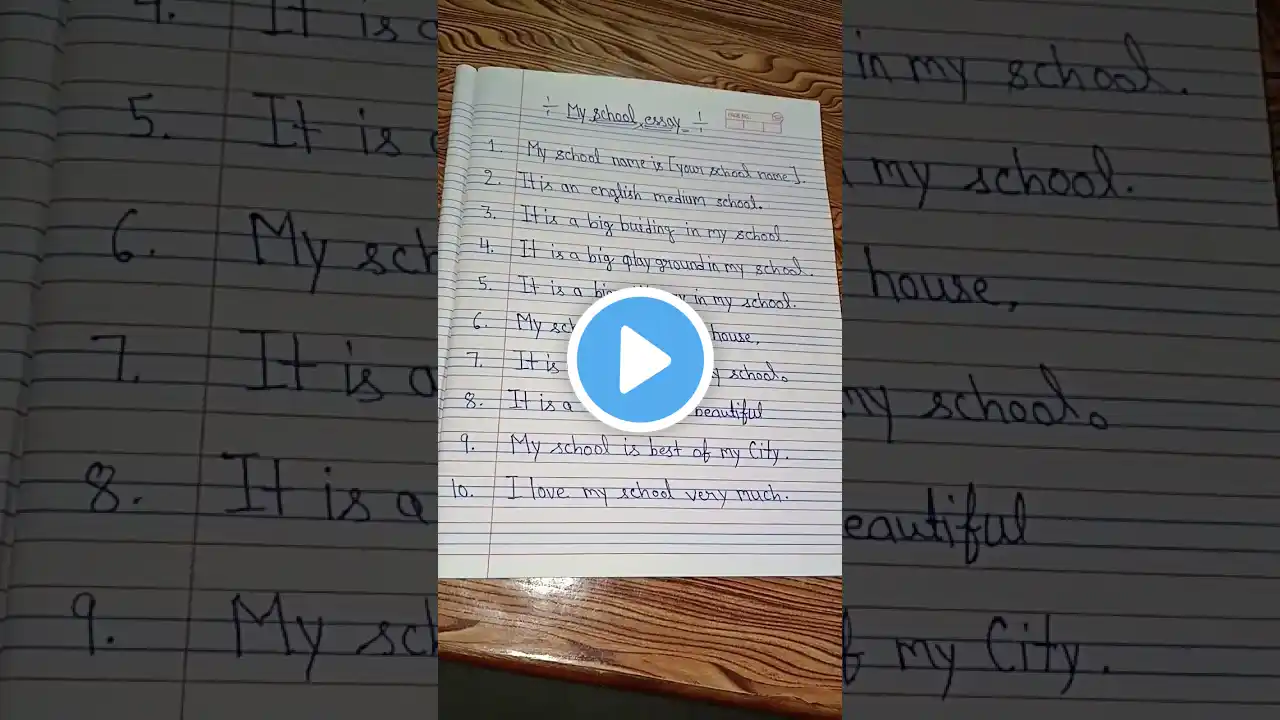 My school essay
1. My school name is [your school name].
2. It is an english medium school.
3. It is a big buiding in my school.
4. It is a big play ground in my school.
5. It is a big in my school.
6. My school house,
7. It is my school.
8. It is a beautiful
9. My school is best of my City.
10. I love my school very much.